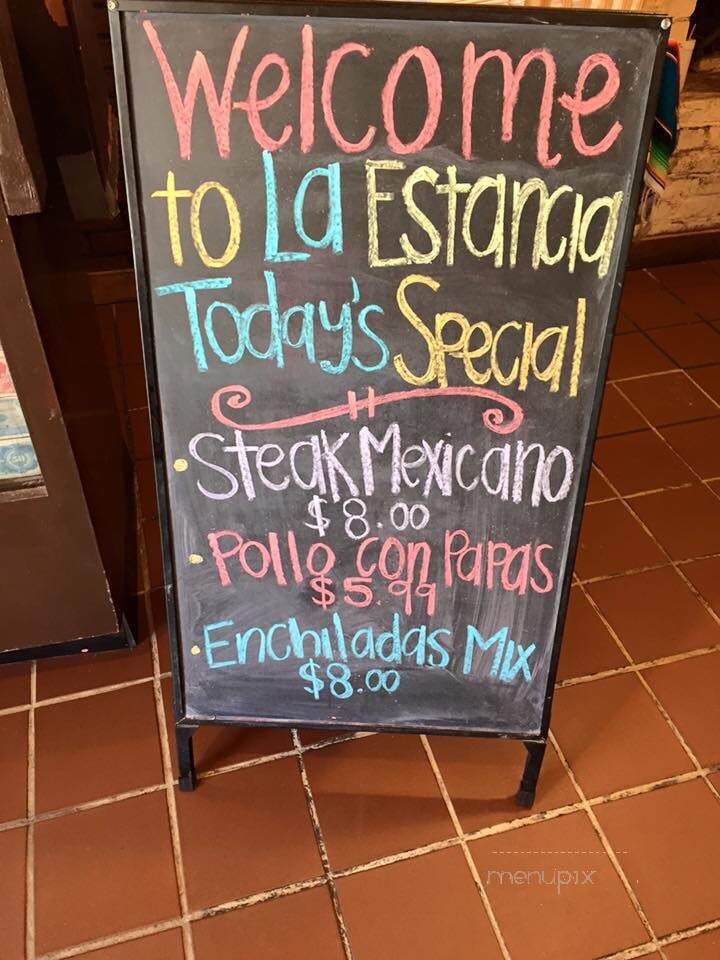 Welcome
to La Estancia
Today's Special
Steak Mexicano
$8.00
Pollo con Papas
$5.99
Enchiladas Mix
$8.00
menupix